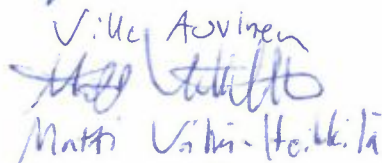 Ville Auvinen
Matti Vähä-Heikkilä